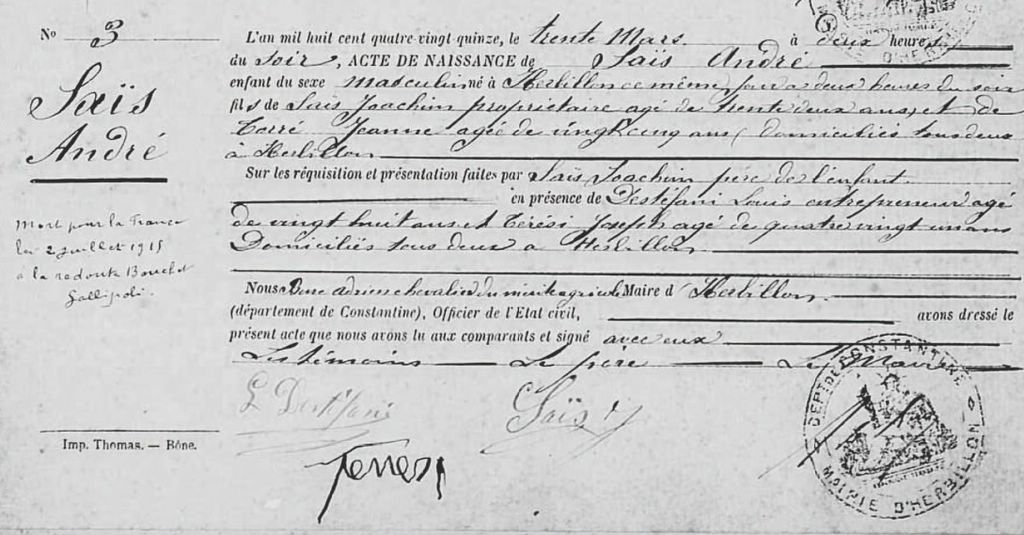 No 3
Saïs
André
Mort pour la France
le 2 juillet 1915
à la redoute Bouchet
Gallipoli.
Imp. Thomas. — Bône.
L'an mil huit cent quatre-vingt-quinze, le trente Mars à deux heures
du soir, ACTE DE NAISSANCE de Saïs André
enfant du sexe masculin né à Herbillon ce même jour à deux heures du soir
fils de Saïs Joachim propriétaire agé de trente deux ans, et de
Torré Jeanne agée de vingt cinq ans, domiciliés tous deux
à Herbillon
Sur les réquisition et présentation faites par Saïs Joachim père de l'enfant
en présence de Destéfani Louis entrepreneur agé
de vingt huit ans et Joseph agé de quatre vingt un ans
Domiciliés tous deux à Herbillon
Nous adrien chevalier du mérite agricole Maire d'Herbillon
(département de Constantine), Officier de l'Etat civil, avons dressé le
présent acte que nous avons lu aux comparants et signé avec eux
Les témoins Le père Le Maire
L Destéfani Saïs J
DEPT DE CONSTANTINE
MAIRIE D'HERBILLON